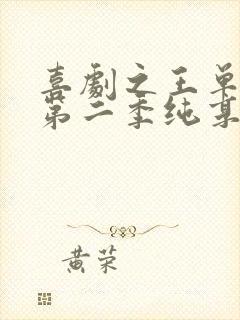 喜劇之王单
第二季纯享
黄荣